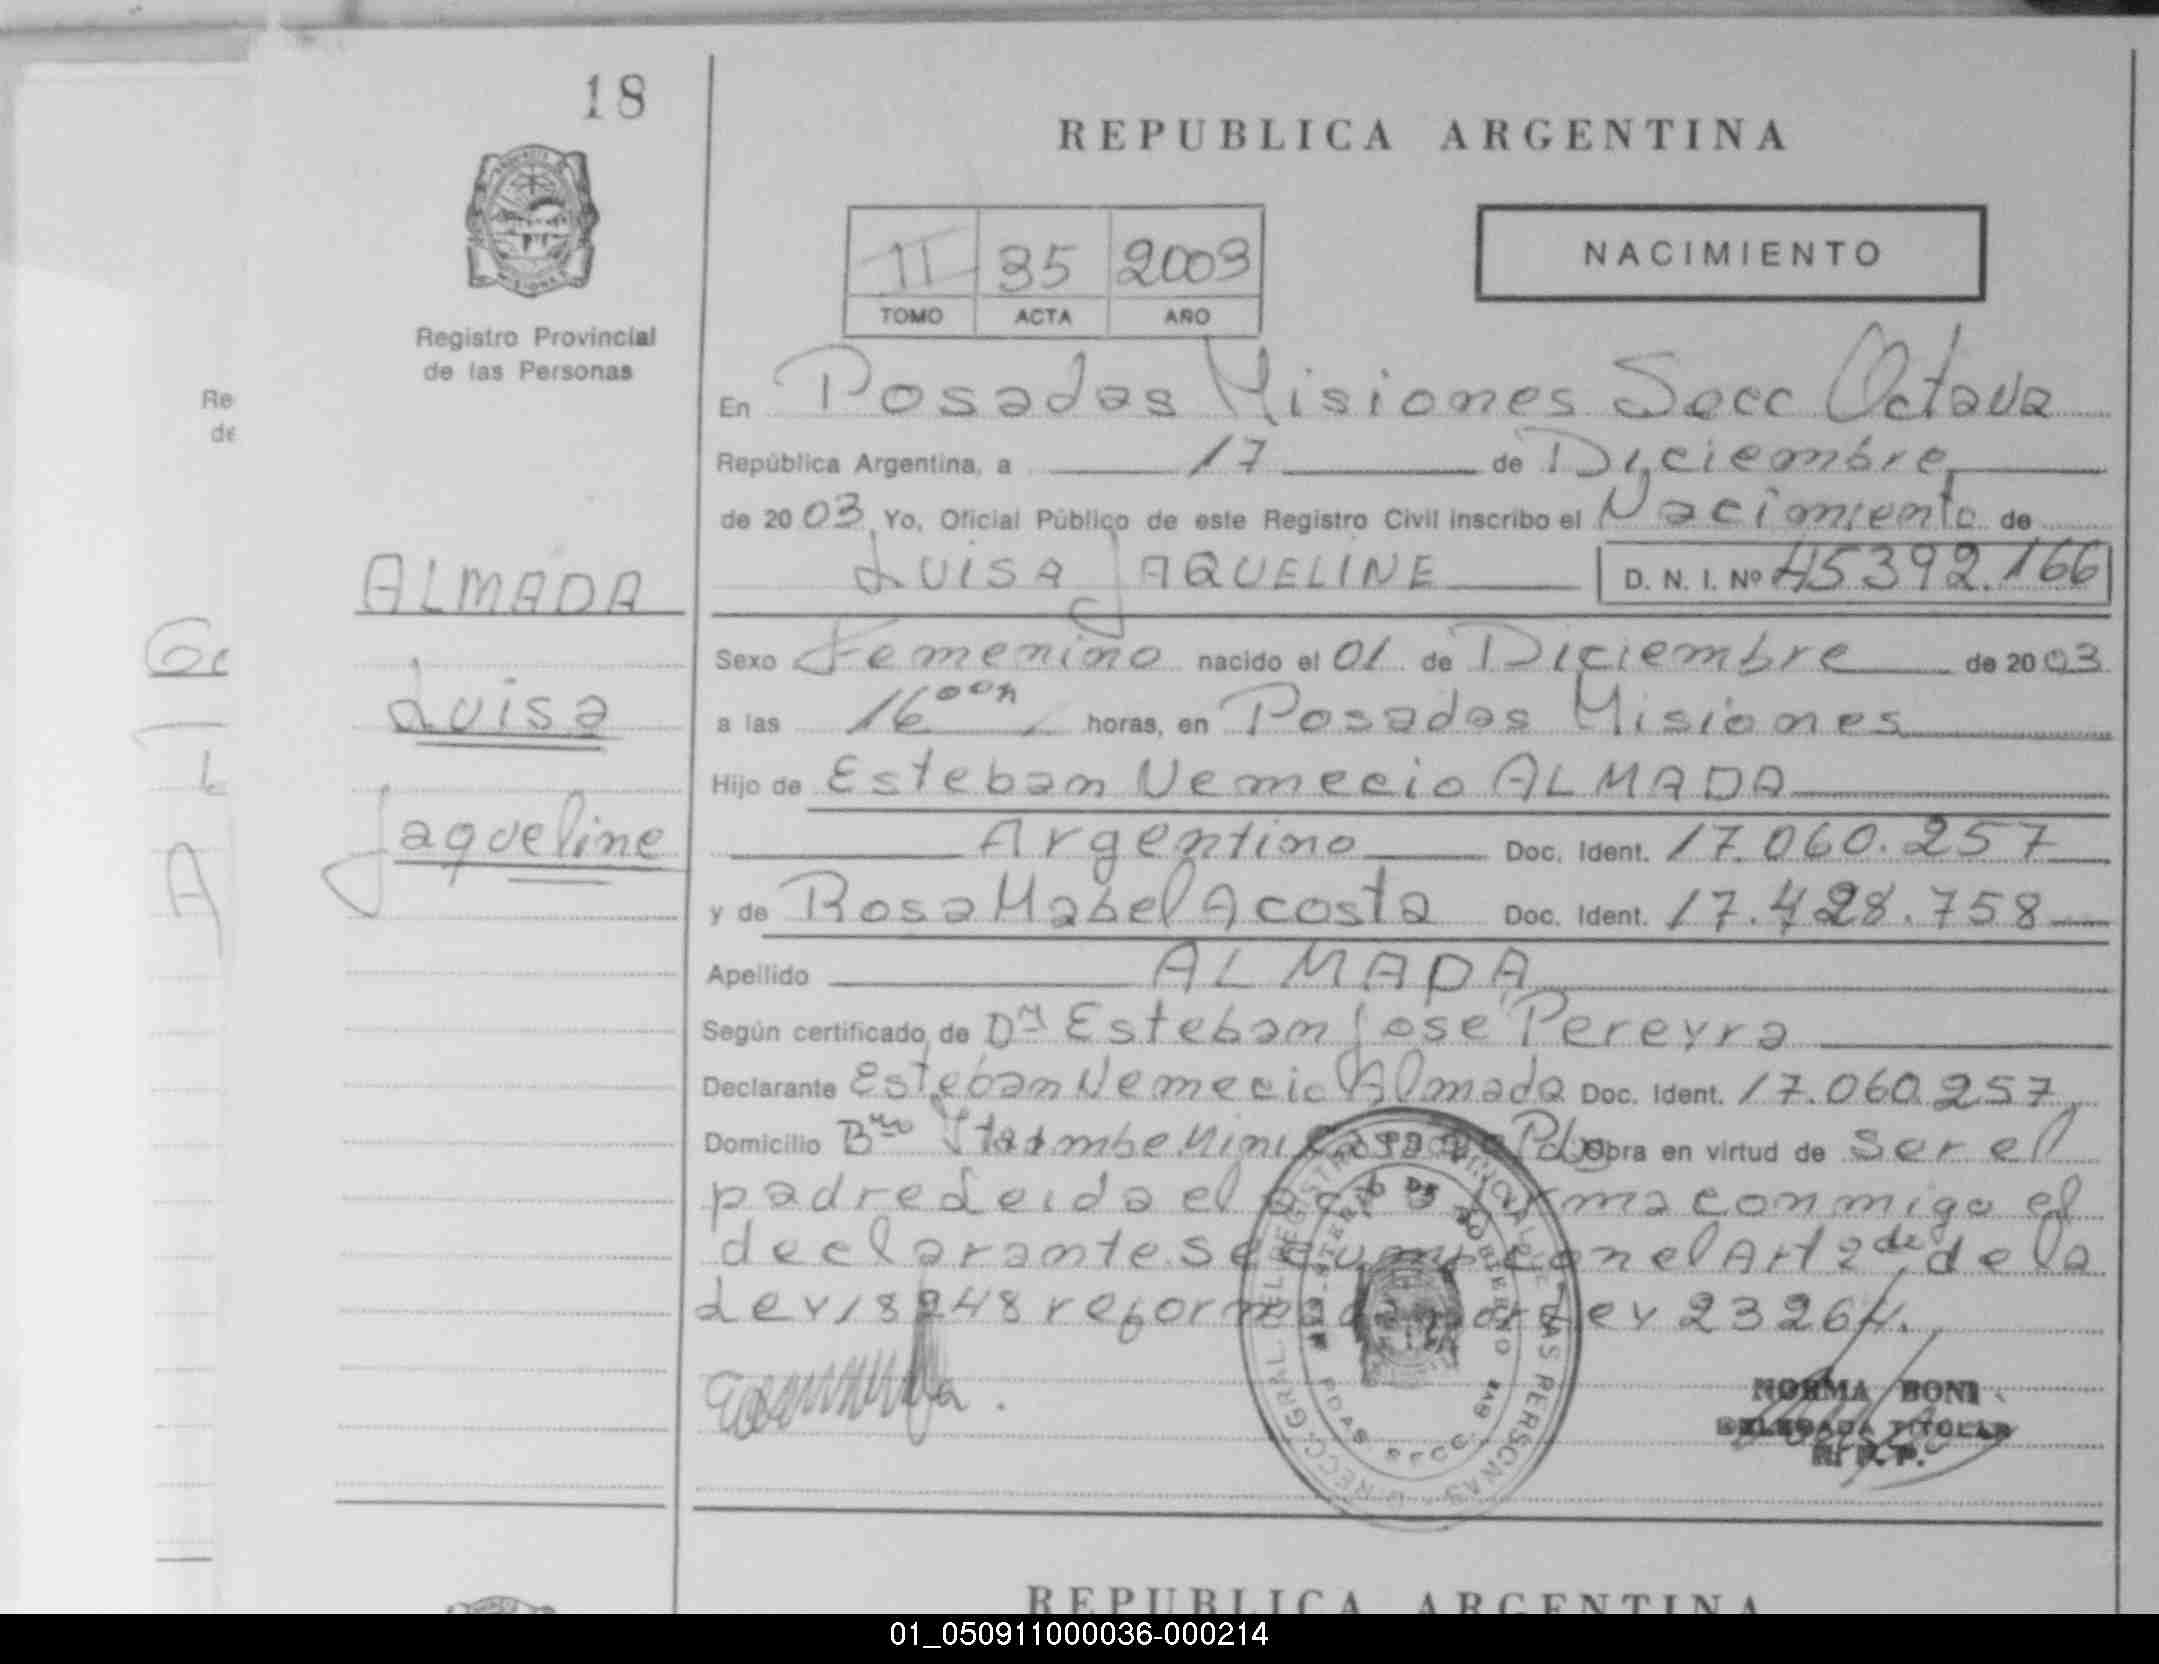 18
REPUBLICA ARGENTINA
II 35 2003
TOMO ACTA AÑO
NACIMIENTO
Registro Provincial
de las Personas
En Posadas Misiones Secc Octava
República Argentina, a 17 de Diciembre
de 2003 Yo, Oficial Público de este Registro Civil inscribo el Nacimiento de
LUISA JAQUELINE D. N. I. Nº 45392.166
ALMADA
Luisa
Jaqueline
Sexo Femenino nacido el 01 de Diciembre de 2003
a las 16ººh horas, en Posadas Misiones
Hijo de Esteban Nemecio ALMADA
Argentino Doc. Ident. 17.060.257
y de Rosa Mabel Acosta Doc. Ident. 17.428.758
Apellido ALMADA
Según certificado de Dr Esteban Jose Pereyra
Declarante Esteban Nemecio Almada Doc. Ident. 17.060.257
Domicilio Bro Itaimbe Mini Pdas Obra en virtud de ser el
padre Leida el acta firma conmigo el
declarante se cumple con el Art 2do de la
Ley 18248 reformada por Ley 23264.
NORMA BONI
DELEGADA TITULAR
R. P. P.
REPUBLICA ARGENTINA
01_050911000036-000214